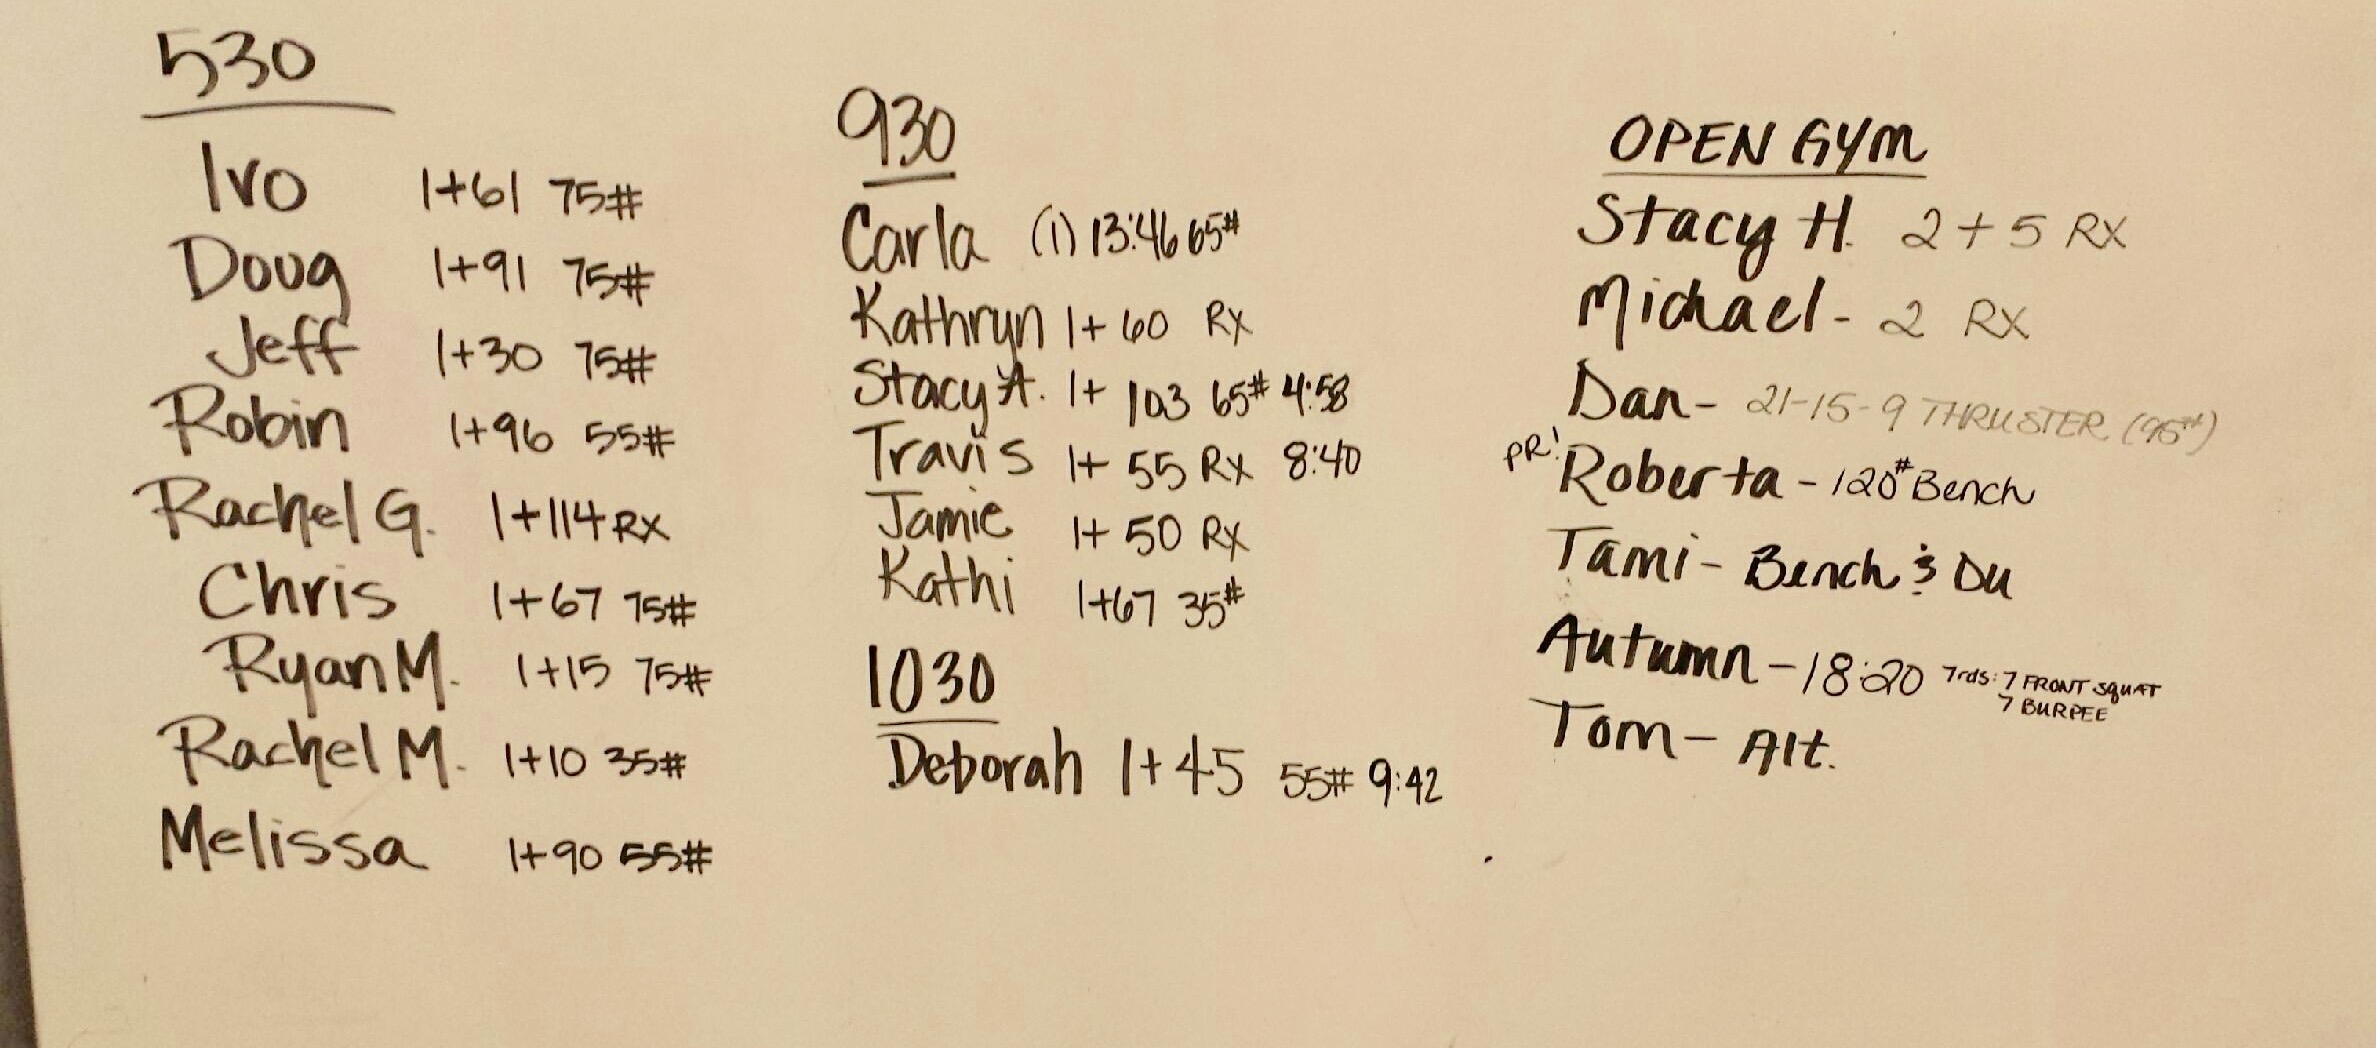 530
Ivo 1+61 75#
Doug 1+91 75#
Jeff 1+30 75#
Robin 1+96 55#
Rachel G. 1+114 RX
Chris 1+67 75#
Ryan M. 1+15 75#
Rachel M. 1+10 35#
Melissa 1+90 55#
930
Carla (1) 13:46 65#
Kathryn 1+60 RX
Stacy A. 1+103 65# 4:58
Travis 1+55 RX 8:40
Jamie 1+50 RX
Kathi 1+67 35#
1030
Deborah 1+45 55# 9:42
OPEN GYM
Stacy H. 2+5 RX
Michael - 2 RX
Dan - 21-15-9 THRUSTER (95#)
PR! Roberta - 120# Bench
Tami - Bench & DU
Autumn - 18:20 7rds: 7 FRONT SQUAT
7 BURPEE
Tom - Alt.